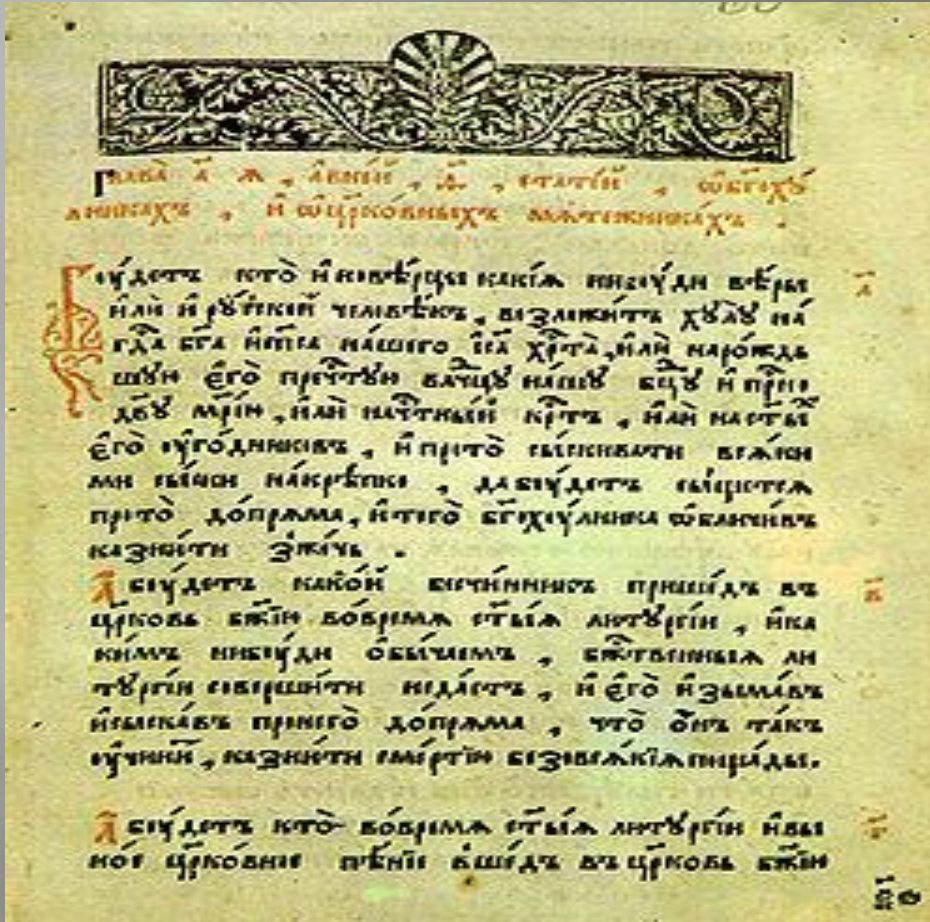 Глава̀ а҃ я , а вней , д҃ , статей , ѡ бг҃охꙋ
лникахъ , и ѡ цр҃ковныхъ мѧтежникахъ .
Бꙋдетъ кто̀ иноверцы какїѧ нибꙋди вѣры
илѝ и рꙋской человѣкъ , возложитъ хꙋлꙋ на
гд҃а бг҃а и сп҃са нашего і҆с҃а хрⷭ҇та̀ , илѝ нарожд
шꙋю є҆го̀ прчⷭ҇тꙋю влⷣчцꙋ нашꙋ бцⷣꙋ и приⷭ҇но
дв҃ꙋ мр҃їю , илѝ на чⷭ҇тный крⷭ҇тъ , илѝ на ст҃ы́хъ
є҆го̀ ᲂугодниковъ , и про то̀ сыскивати всѧки
ми сыски накрѣпко , да бꙋдетъ сыщетсѧ
про то̀ допрѧма , и того̀ бг҃охꙋлника ѡбличивъ
казнити зжечь .
А бꙋдетъ какой бесчинникъ пришедъ въ
цр҃ковь бж҃їю во времѧ ст҃ы́ѧ литꙋргїи , и ка
кимъ нибꙋди ѻбычаемъ , бжⷭ҇твенныѧ ли
тꙋргїи совершити не дастъ , и є҆го̀ изымавъ
и сыскавъ про него̀ допрѧма , что ѻнъ такъ
ᲂучинитъ , казнити смертїю безо всѧкїѧ пощады .
А бꙋдетъ кто̀ во времѧ ст҃ы́ѧ литꙋргїи и в ы
ное цр҃ковное пѣнїе вшедъ въ цр҃ковь бж҃їю
а҃
в҃
г҃